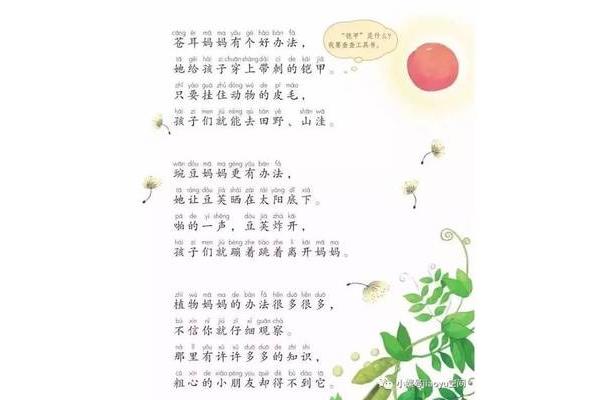 cāng ěr mā ma yǒu gè hǎo bàn fǎ
苍耳妈妈有个好办法，
“铠甲”是什么？
我要查查工具书。
tā gěi hái zi chuān shàng dài cì de kǎi jiǎ
她给孩子穿上带刺的铠甲。
zhǐ yào guà zhù dòng wù de pí máo
只要挂住动物的皮毛，
hái zi men jiù néng qù tián yě shān wā
孩子们就能去田野、山洼。
wān dòu mā ma gèng yǒu bàn fǎ
豌豆妈妈更有办法，
tā ràng dòu jiá shài zài tài yáng dǐ xià
她让豆荚晒在太阳底下。
pā de yì shēng dòu jiá zhà kāi
啪的一声，豆荚炸开，
hái zi men jiù bèng zhe tiào zhe lí kāi mā ma
孩子们就蹦着跳着离开妈妈。
zhí wù mā ma de bàn fǎ hěn duō hěn duō
植物妈妈的办法很多很多，
bú xìn nǐ jiù zǐ xì guān chá
不信你就仔细观察。
nà lǐ yǒu xǔ xǔ duō duō de zhī shi
那里有许许多多的知识，
cū xīn de xiǎo péng yǒu què dé bú dào tā
粗心的小朋友却得不到它。